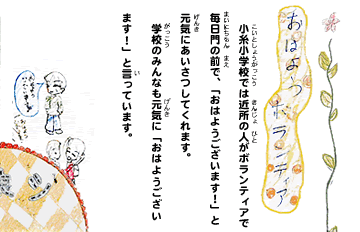 おはようボランティア
小糸小学校では近所の人がボランティアで
毎日門の前で、「おはようございます！」と
元気にあいさつしてくれます。
学校のみんなも元気に「おはようござい
ます！」と言っています。